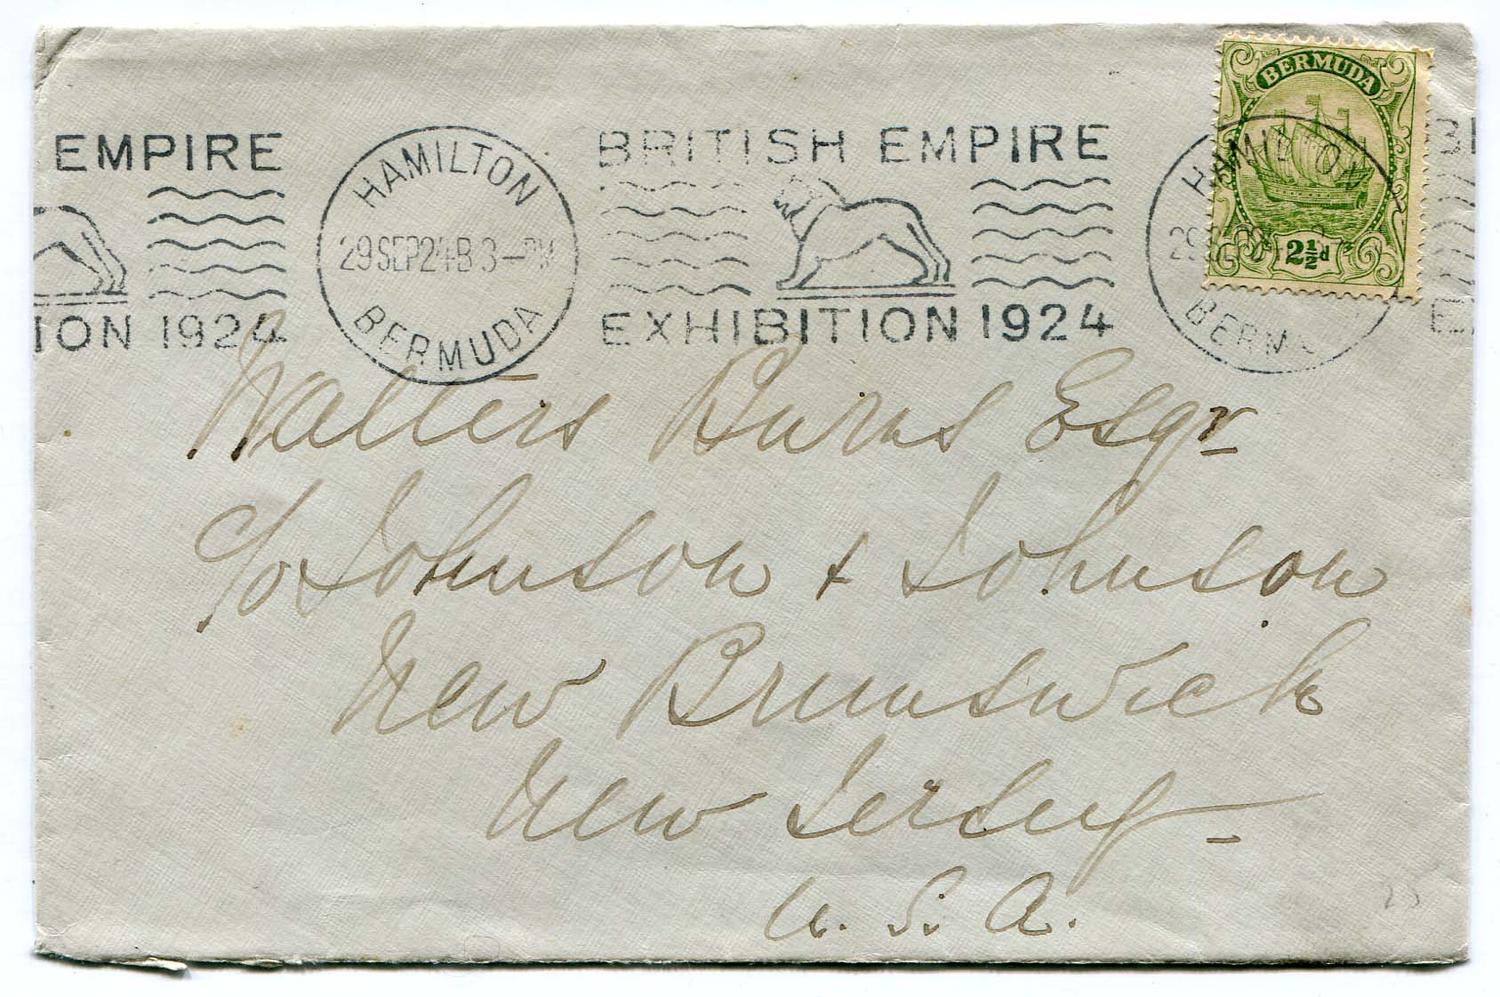 BERMUDA
2½d
EMPIRE
ION 1924
HAMILTON
29 SEP 24 B 3-PM
BERMUDA
BRITISH EMPIRE
EXHIBITION 1924
HAMILTON
29
BERM
Walters Burns Esqr
c/o Johnson + Johnson
New Brunswick
New Jersey
U. S. A.